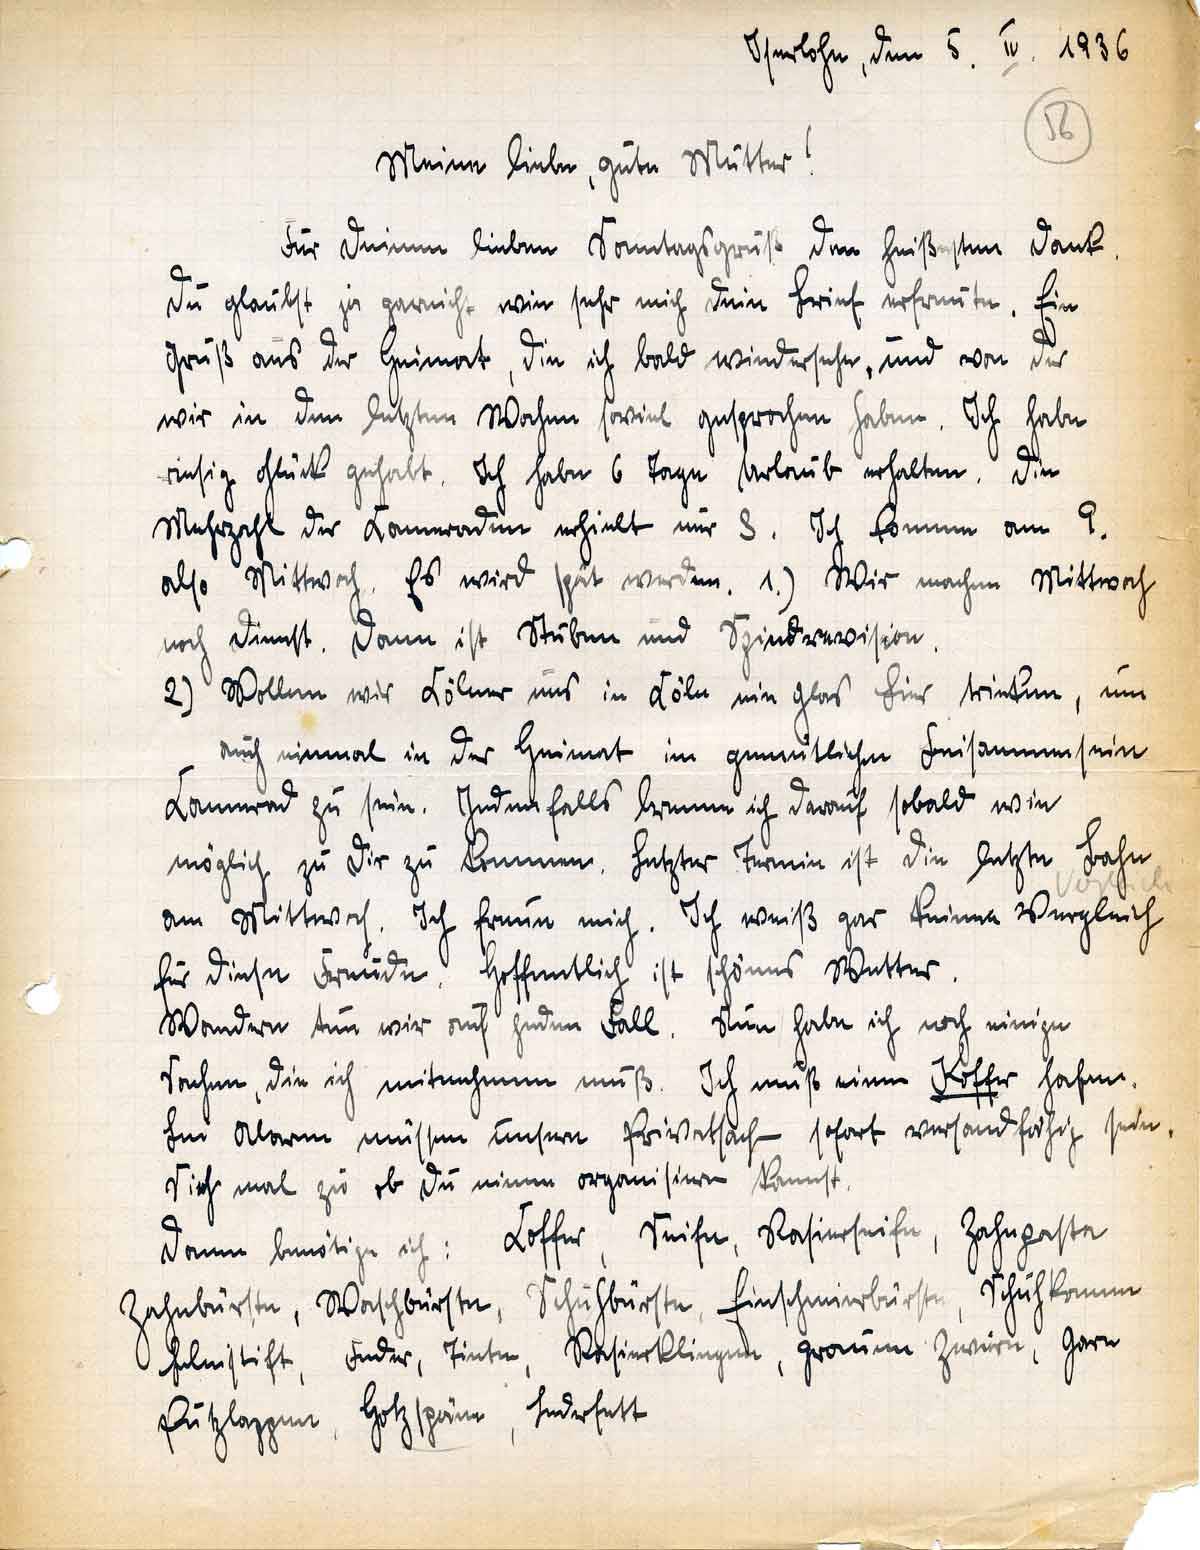 Iserlohn, den 5. IV. 1936
56
Meine liebe, gute Mutter!
Für Deinen lieben Sonntagsgruß den heißesten Dank.
Du glaubst ja garnicht wie sehr mich Dein Brief erfreute. Ein
Gruß aus der Heimat, die ich bald wiedersehe, und von der
wir in den letzten Wochen soviel gesprochen haben. Ich habe
riesig Glück gehabt. Ich habe 6 Tage Urlaub erhalten. Die
Mehrzahl der Kameraden erhielt nur 3. Ich komme am 9.
also Mittwoch. Es wird spät werden. 1.) Wir machen Mittwoch
noch Dienst. Dann ist Stuben und Spindrevision.
2) Wollen wir Kölner uns in Köln ein Glas Bier trinken, um
auch einmal in der Heimat im gemütlichen Beisammensein
Kamerad zu sein. Jedenfalls brenne ich darauf sobald wie
möglich zu Dir zu kommen. Letzter Termin ist die letzte Bahn
Vergleich
am Mittwoch. Ich freue mich. Ich weiß gar keinen Vergleich
für diese Freude. Hoffentlich ist schönes Wetter.
Wandern tun wir auf jeden Fall. Nun habe ich noch einige
Sachen, die ich mitnehmen muß. Ich muß einen Koffer haben.
Bei Alarm müssen unsere Privatsach sofort versandfähig sein.
Sieh mal zu ob Du einen organisieren kannst.
Dann benötige ich: Koffer, Seife, Rasierseife, Zahnpasta
Zahnbürste, Waschbürste, Schuhbürste, Einschmierbürste, Schuhkreme
Bleistift, Feder, Tinte, Rasierklingen, grauen Zwirn, Garn
Putzlappen, Holzspäne, Lederfett